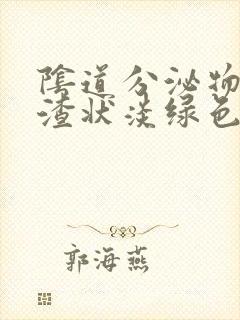 陰道分泌物
渣狀淡绿色
郭海燕